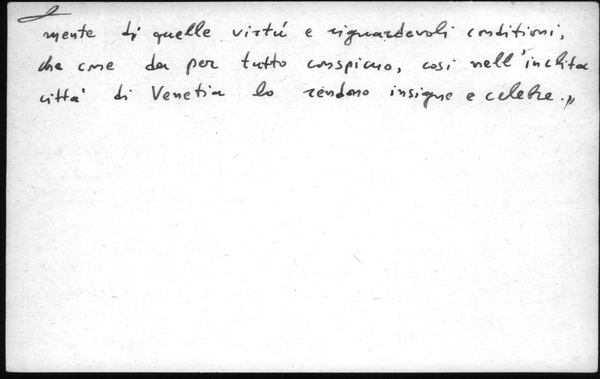 mente di quelle virtú e riguardevoli conditioni,
che come da per tutto conspicuo, cosi nell'inclita
città di Venetia lo rendono insigne e celebre.„